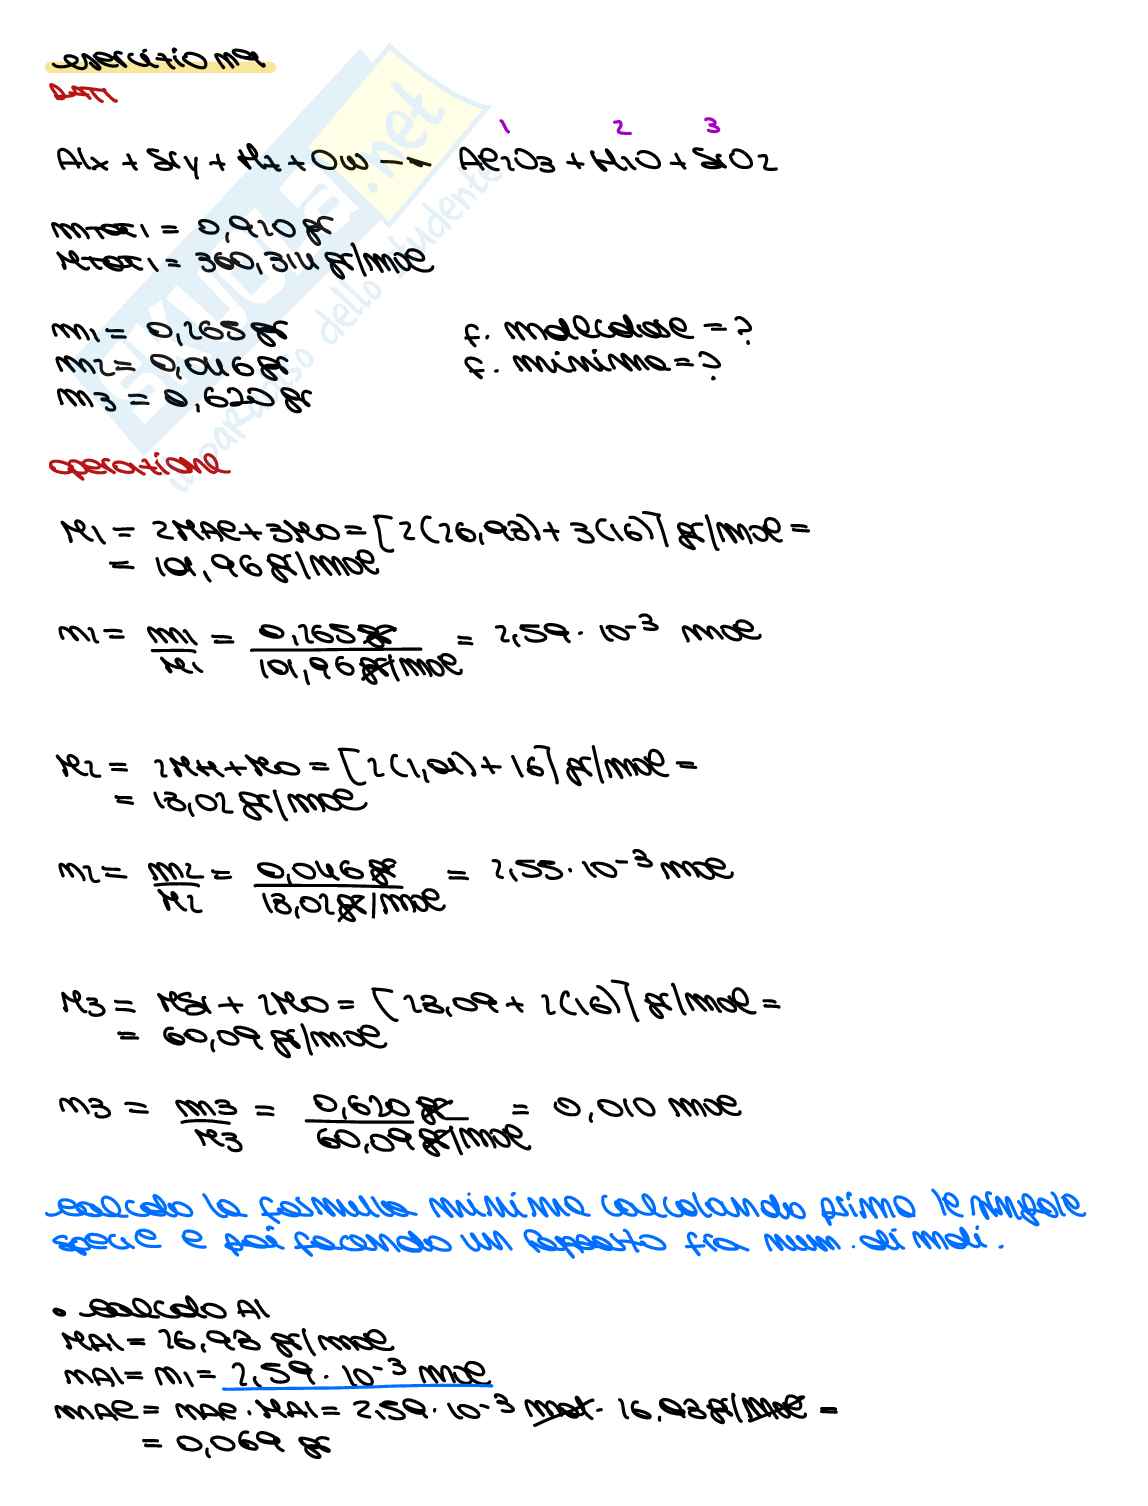 esercizio n9
DATI
1 2 3
Alx + Siy + Hz + Ow → Al2O3 + H2O + SiO2
mTOT1 = 0,920 gr
MTOT1 = 360,314 gr/mol
m1 = 0,265 gr
f. molecolare = ?
m2 = 0,046 gr
f. minima = ?
m3 = 0,620 gr
operazione
M1 = 2MAl + 3MO = [2(26,98) + 3(16)] gr/mol =
= 101,96 gr/mol
n1 = m1/M1 = 0,265 gr/101,96 gr/mol = 2,59 · 10⁻³ mol
M2 = 2MH + MO = [2(1,01) + 16] gr/mol =
= 18,02 gr/mol
n2 = m2/M2 = 0,046 gr/18,02 gr/mol = 2,55 · 10⁻³ mol
M3 = MSi + 2MO = [28,09 + 2(16)] gr/mol =
= 60,09 gr/mol
n3 = m3/M3 = 0,620 gr/60,09 gr/mol = 0,010 mol
calcolo la formula minima calcolando prima le singole
specie e poi facendo un rapporto fra num. di moli.
• calcolo Al
MAl = 26,98 gr/mol
nAl = n1 = 2,59 · 10⁻³ mol
mAl = nAl · MAl = 2,59 · 10⁻³ mol · 26,98 gr/mol =
= 0,069 gr
SKUOLA.net
il paradiso dello studente